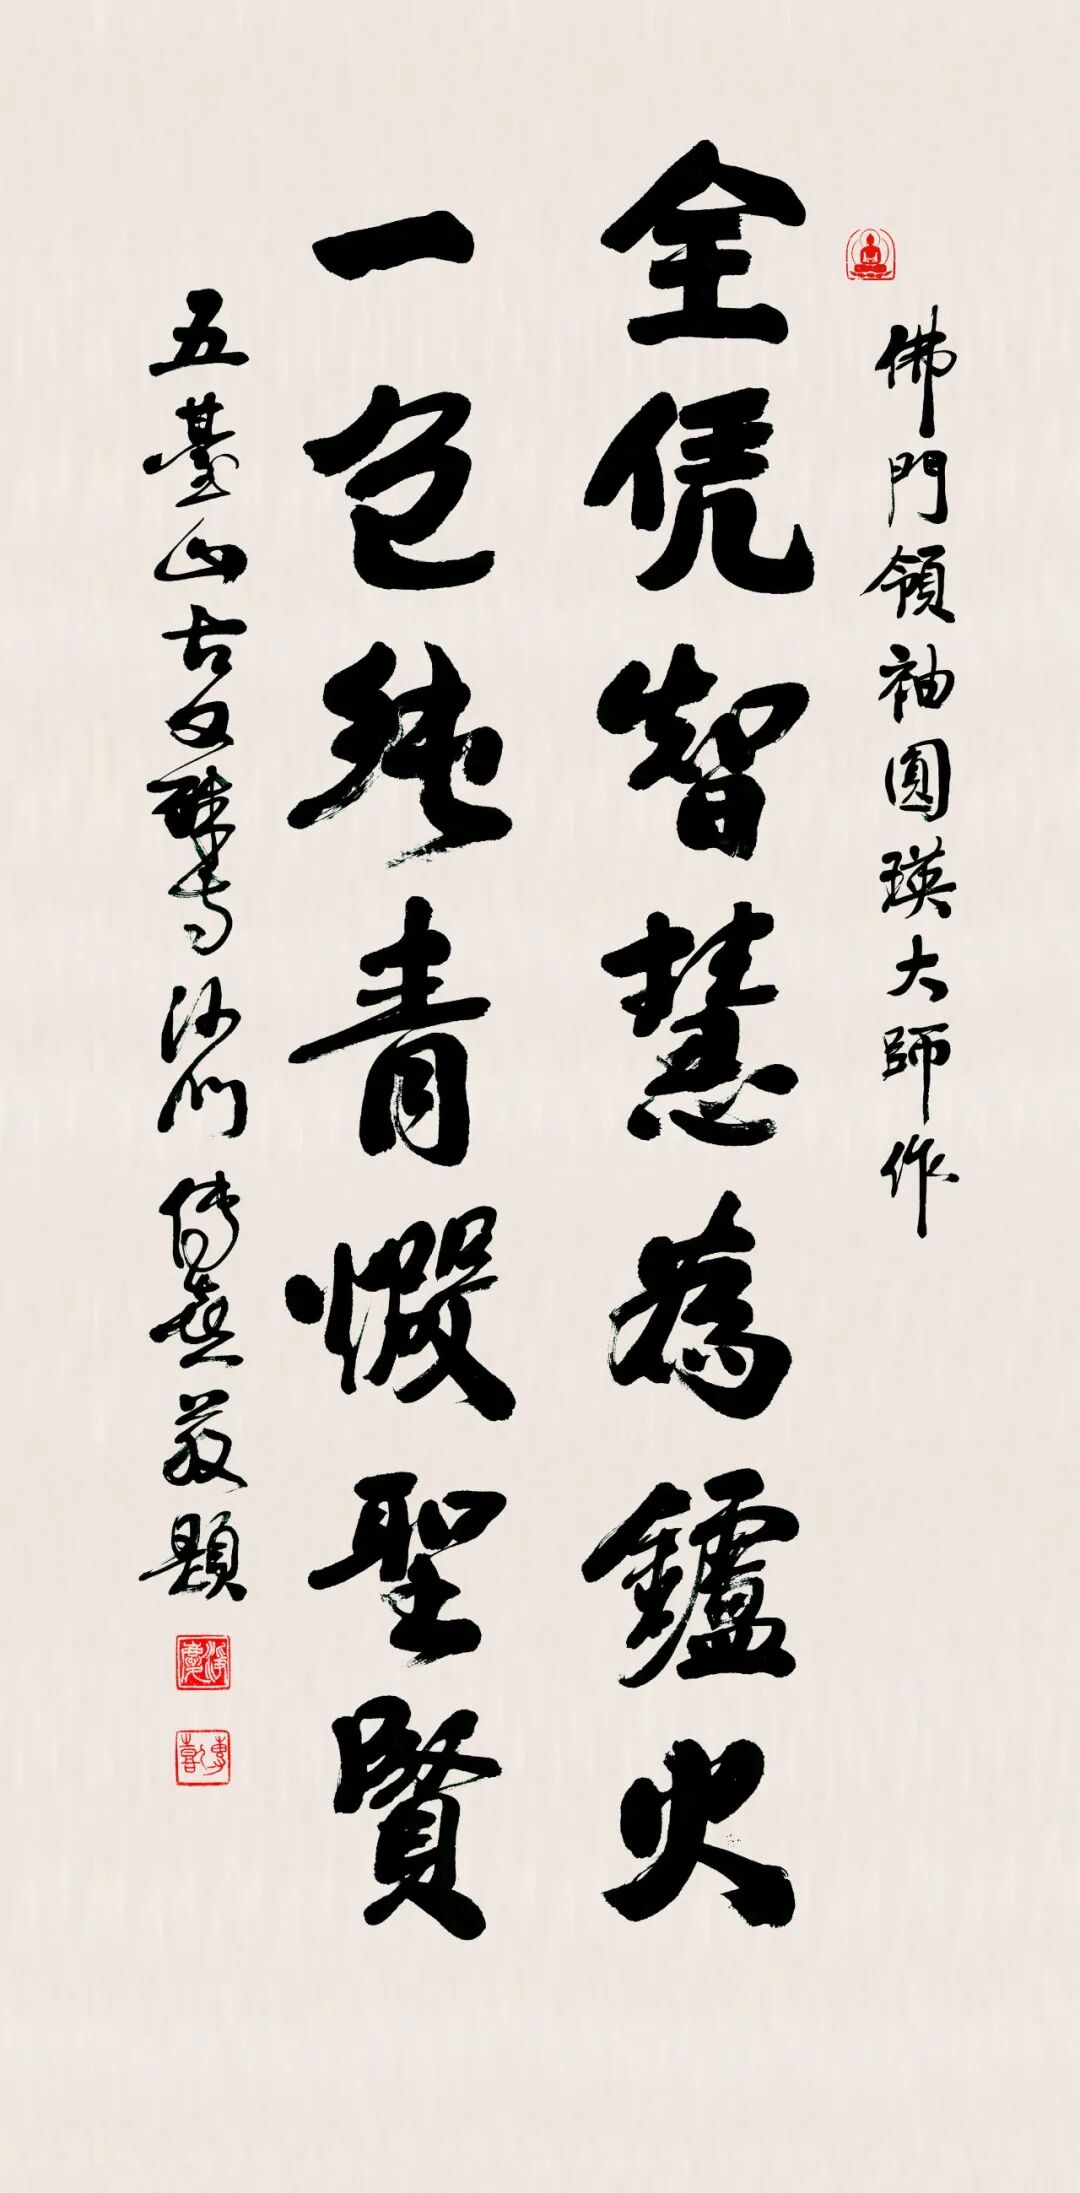 佛門領袖圓瑛大師作
全凭智慧為鑪火
一色純青煅聖賢
五臺山古文殊寺沙門傳喜敬題
傳喜